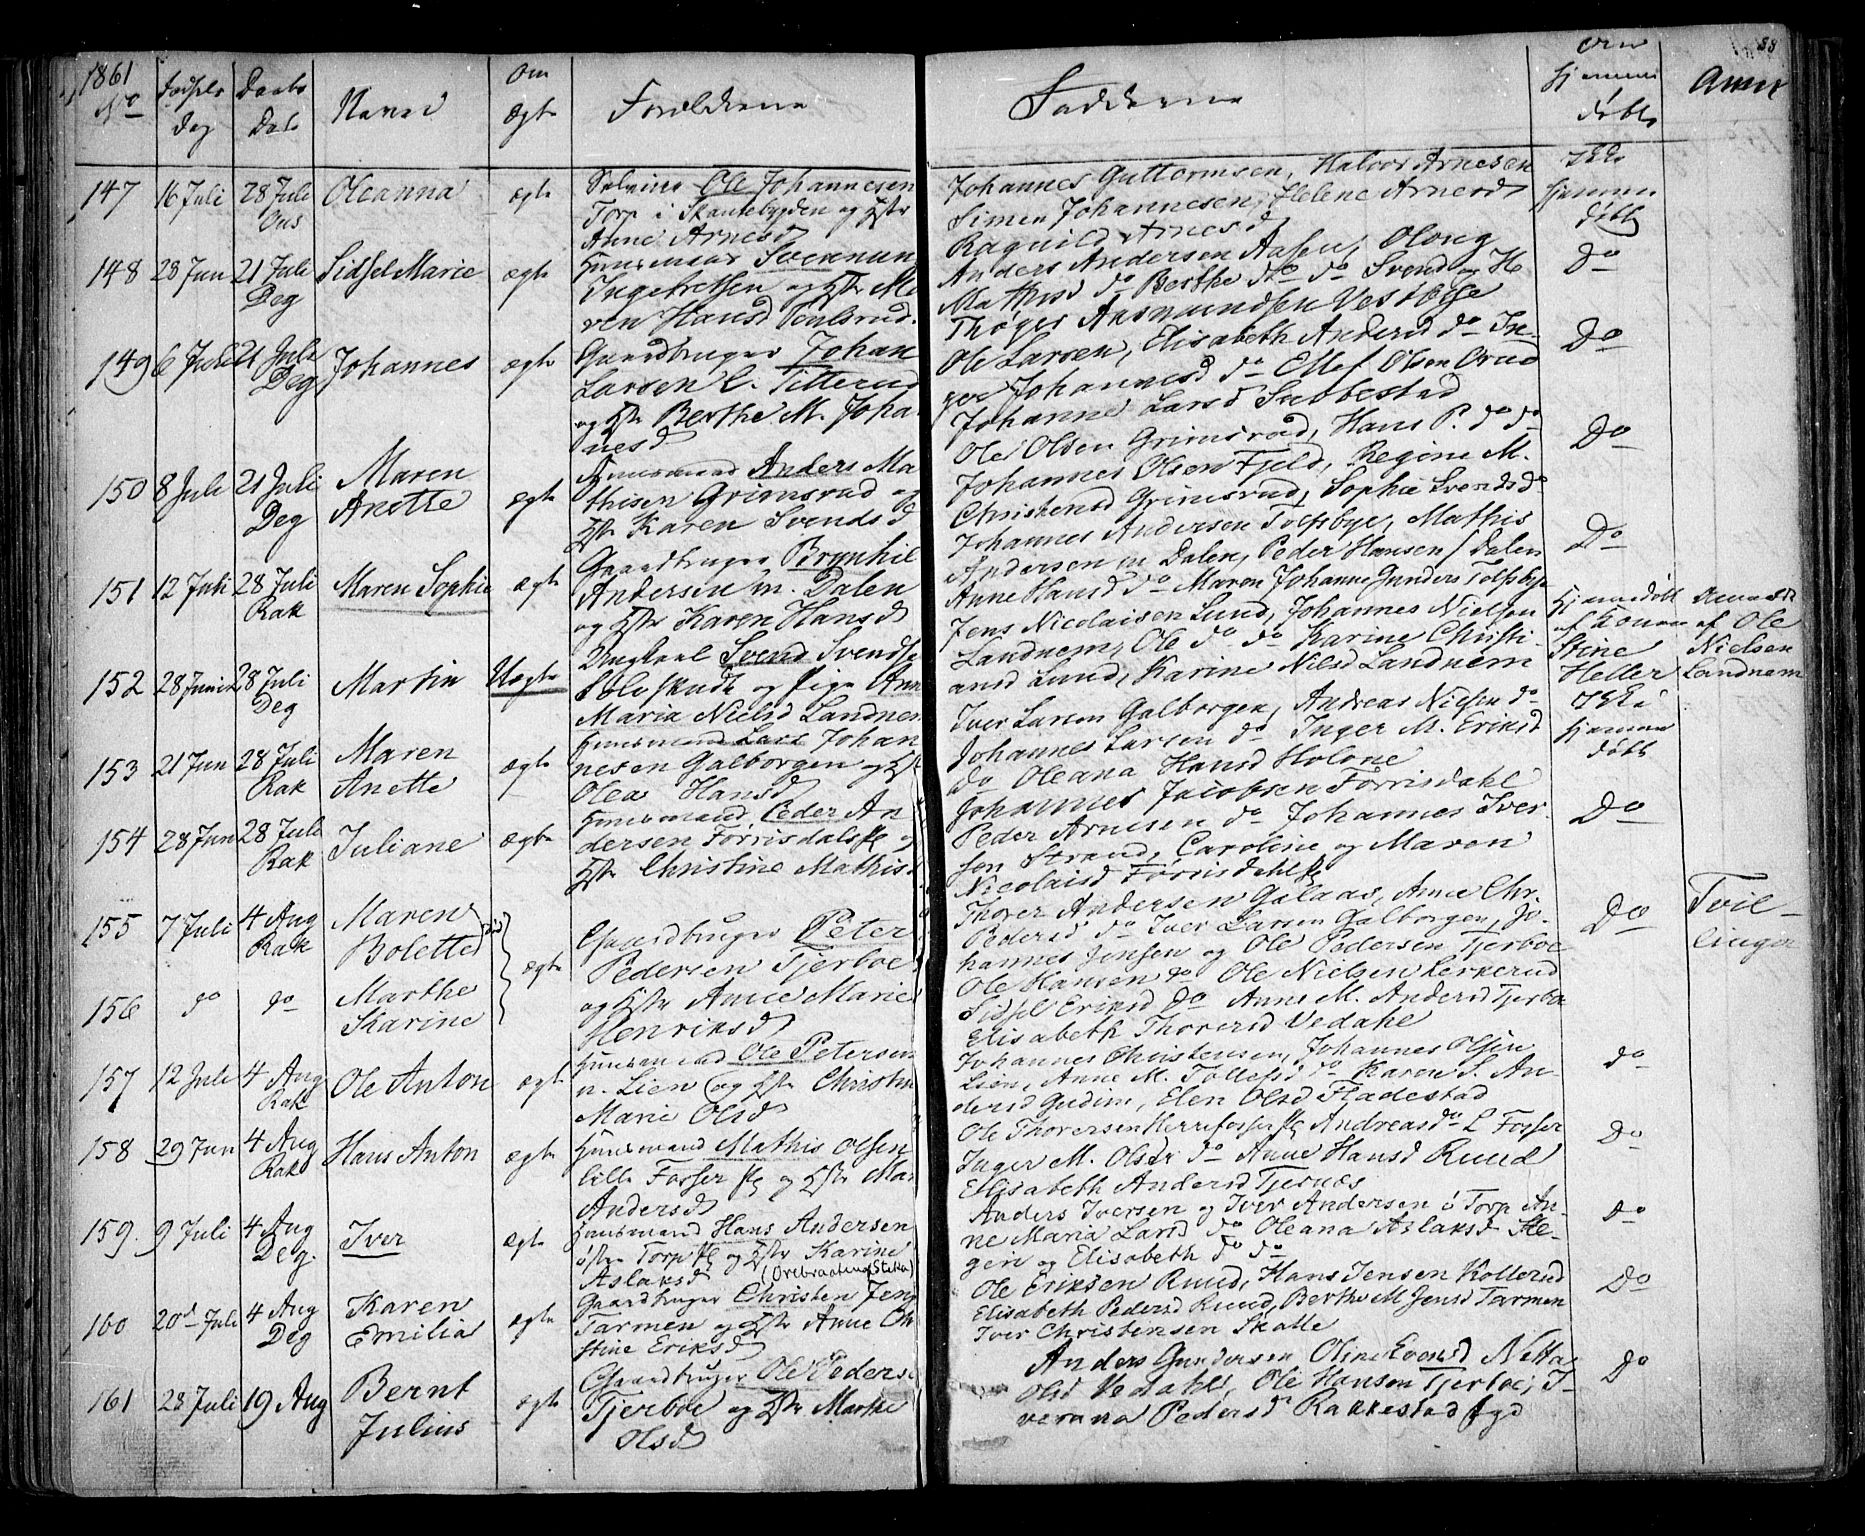 1861
No
Fødsels
dag
Daabs
Dato
Navn
Om
Ægte
Forældrene
Fadderne
om
hjemme
døbt
Anm
147 16 Juli 28 Juli Oleanna ægte
Ous
Ole Johannesen
Torp i Skantebygden og Hstr
Anne Arnesd
Johannes Guttormsen, Halvor Arnesen
Simen Johannesen, Helene Arnesd
Ragnild Arnesd
Ikke
hjemme
døbt
148 23 Jun 21 Juli Sidsel Marie ægte
Deg
Huusmand Svennung
Ingebretsen og Hstr Ma
ren Hansd Poulsrud
Anders Andersen Aasen, Olong
Mathisd do Berthe do do Svend og H
Thøger Aasmundsen Vestbøe
Do
149 6 Juli 21 Juli Johannes ægte
Deg
Gaardbruger Johan
Larsen l. Titterud
og Hstr Berthe M. Joha
nesd
Ole Larsen, Elisabeth Andersd do In-
ger Johannesd do Ellef Olsen Oreid
Johanne Larsd Subbestad
Do
150 8 Juli 21 Juli Maren
Deg Anette ægte
Huusmand Anders Ma
thisen Grimsrud og
Hstr Karen Svendsd
Ole Olsen Grimsrud, Hans P. do do
Johannes Olsen Fjeld, Regine M.
Christensd Grimsrud, Sophie Svendsd do
Do
151 12 Juli 28 Juli Maren Sophie ægte
Rak
Gaardbruger Brynhil
Andersen m. Dalen
og Hstr Karen Hansd
Johannes Andersen Tolfsbye, Mathis
Andersen m Dalen, Peder Hansen / Dalen
Anne Hansd do Maren Johanne Gunders Tolfsbye
Do
152 28 Juni 28 Juli Martin Uægte
Deg
Ungkarl Svend Svends
Soleskudt og Pige Ann
Maria Nielsd Landnem
Jens Nicolaisen Lund, Johannes Nielsen
Landnem, Ole do do Karine Christi
ansd Lund, Karine Nilsd Landnem
hjemmedøbt
af Konen
Stine
Heller
Anmeldt
af Ole
Nielsen
Landnem
153 21 Jun 28 Juli Maren
Rak Anette ægte
Huusmand Lars Johan
nesen Galborgen og Hstr
Olea Hansd
Iver Larsen Galborgen, Andreas Nielsen do
Johannes Larsen do Inger M. Eriksd
do Oleana Hansd Holone
Ikke
hjemme
døbt
154 28 Jun 28 Juli Juliane ægte
Rak
Huusmand Peder An
dersen Førrisdalsej og
Hstr Christine Mathisd
Johannes Jacobsen Førrisdahl
Peder Arnesen do Johannes Iver
sen Strand, Caroline og Maren
Nicolaisd Førrisdahlej
Do
155 7 Juli 4 Aug Maren
Rak Bolette død
156 do do Marthe
Karine
ægte
Gaardbruger Peter
Pedersen Tjerbøe
og Hstr Anne Marie
Henriksd
Thorer Andersen Galaas, Anne Chr.
Pedersd do Iver Larsen Galborgen, Jo-
hannes Jensen og Ole Pedersen Tjerbøe
Ole Hansen do Ole Nielsen Lerkerud
Sidsel Eriksd do Anne M. Andersd Tjerbø
Elisabeth Thorersd Vedahl
Do
Tvil-
linger
157 12 Juli 4 Aug Ole Anton ægte
Rak
Huusmand Ole Petersen
n. Lien og Hstr Christin
Marie Olsd
Johannes Christensen, Johannes Olsen
Lien, Anne M. Tollefsd do Karen S. An-
dersd Gudim, Elen Olsd Fladestad
do
158 29 Jun 4 Aug Hans Anton ægte
Rak
Huusmand Mathis Olsen
lille Fosser ej og Hstr Mar
Andersd
Ole Thoresen Herrefosser ej Andreas do L Fosser
Inger M. Olsdr do Anne Hansd Ruud
Elisabeth Andersd Tjernæs
Do
159. 9 Juli 4 Aug Iver ægte
Deg.
Huusmand Hans Andersen
østre Torp ej og Hstr Karine
Aslaksd (Orebraaten Steka)
Anders Iversen og Iver Andersen ø Torp An-
ne Maria Larsd do Oleana Aslaksd Ste-
gen og Elisabeth do do
Do
160 20d Juli 4 Aug Karen
Deg Emilia ægte
Gaardbruger Christen Jens
Tarmen og Hstr Anne Chr
stine Eriksd
Ole Eriksen Ruud, Hans Jensen Kollerud
Elisabeth Pedersd Ruud, Berthe M Jensd Tarmen
Iver Christensen Skatle
Do
161 28 Juli 19 Aug Bernt
Julius ægte
Gaardbruger Ole Peders
Tjerbøe og Hstr Marthe
Olsd
Anders Gundersen Oline Evensd Netta
Olsd Vedahl, Ole Hansen Tjerbøe, I-
verana Pedersd Rakkestad
Do